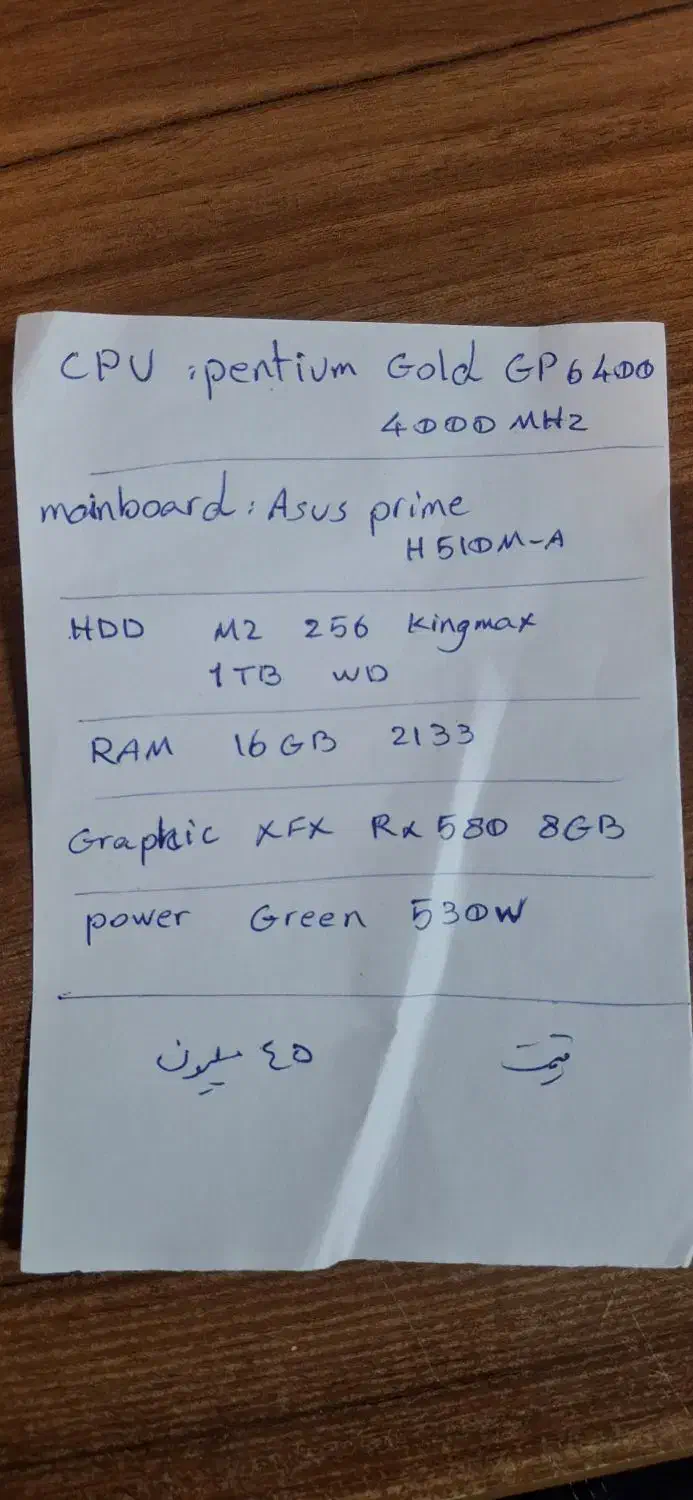 CPU : pentium Gold GP6400
4000 MHz
mainboard : Asus prime
H510M-A
HDD M2 256 kingmax
1TB WD
RAM 16GB 2133
Graphic XFX Rx 580 8GB
power Green 530W
قیمت ٤٥ میلیون